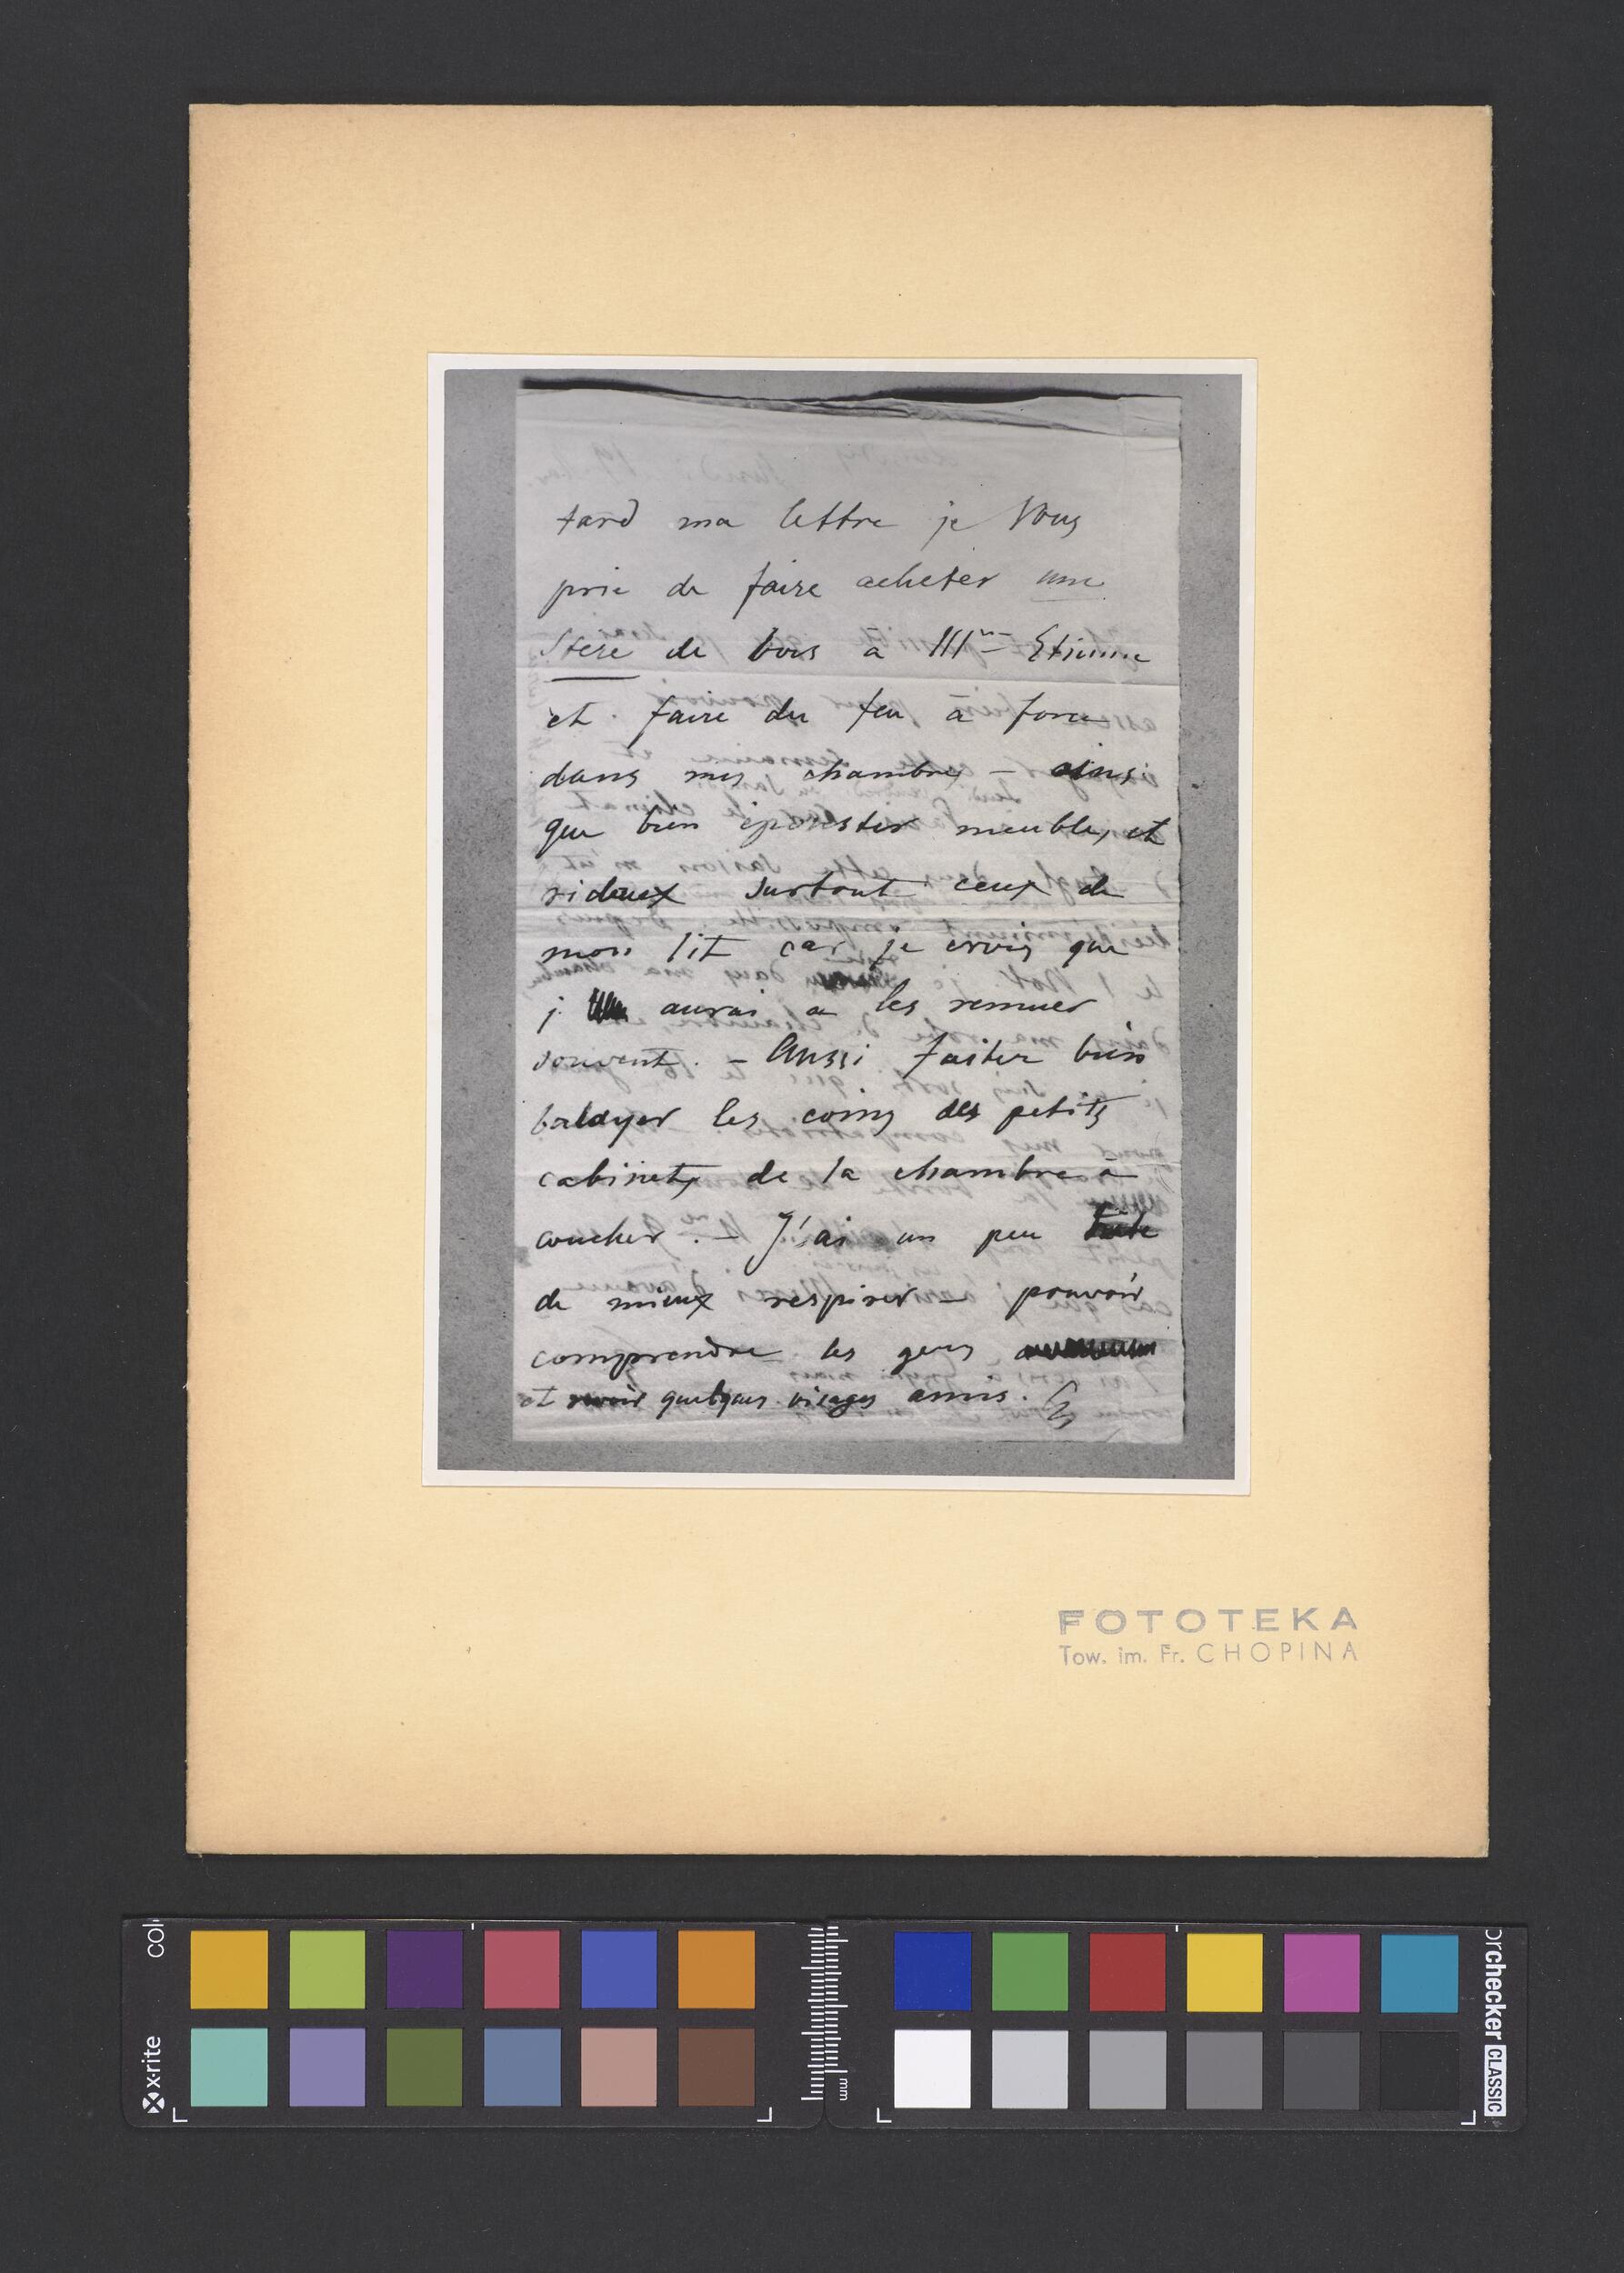 tard ma lettre je Vous
prie de faire acheter une
Stere de bois à Mme Etienne
et faire du feu à force
dans mes chambres – ainsi
que bien épouster meubles, et
rideaux surtout ceux de
mon lit car je crois que
j' aurai a les remuer
souvent. – Aussi faites bien
balayer les coins des petits
cabinets de la chambre à
coucher. – J'ai un peu hate
de mieux respirer – pouvoir
comprendre les gens
et revoir quelques visages amis.
FOTOTEKA
Tow. im. Fr. CHOPINA
x-rite
colorchecker CLASSIC
mm